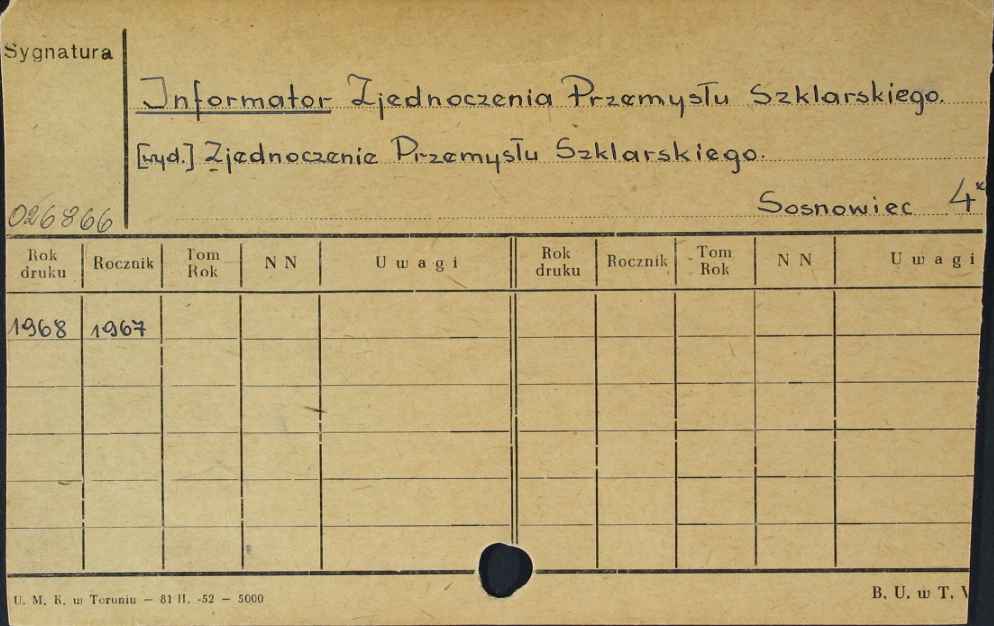 Sygnatura
Informator Zjednoczenia Przemysłu Szklarskiego.
[wyd.] Zjednoczenie Przemysłu Szklarskiego.
Sosnowiec 4°
026866
Rok druku Rocznik Tom Rok N N Uwagi Rok druku Rocznik Tom Rok N N Uwagi
1968 1967
U. M. K. w Toruniu — 81 II. -52 — 5000
B. U. w T.